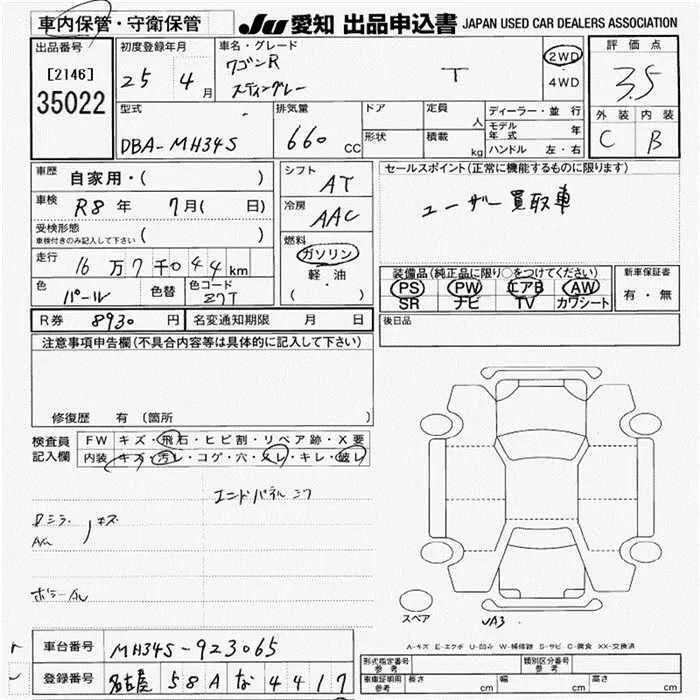 車内保管・守衛保管 JU 愛知 出品申込書 JAPAN USED CAR DEALERS ASSOCIATION
出品番号 初度登録年月 車名・グレード 評価点
[2146] 25 4月 ワゴンR T 2WD 3.5
35022 スティングレー 4WD
型式 排気量 ドア 定員 人 ディーラー・並行 外装 内装
DBA-MH34S 660 CC 形状 積載 kg モデル年式 年 C B
ハンドル 左・右
車歴 自家用・( ) シフト AT セールスポイント(正常に機能するものに限ります)
車検 R8年 7月( 日) 冷房 AAC ユーザー買取車
受検形態 車検付きのみ記入して下さい ( )
燃料 ガソリン
走行 16万7千044km 軽油 装備品(純正品に限り○をつけてください) 新車保証書
色 パール 色替 色コード Z7T ( ・ ) PS PW エアB AW 有・無
SR ナビ TV カワシート
R券 8930円 名変通知期限 月 日 後日品
注意事項申告欄(不具合内容等は具体的に記入して下さい)
修復歴 有 (箇所 )
検査員記入欄 FW キズ・飛石・ヒビ割・リペア跡・X要
内装 キズ・汚レ・コゲ・穴・スレ・キレ・破レ
エンドパネル
キズ
スペア
A-キズ E-エクボ U-凹み W-補修跡 S-サビ C-腐食 XX-交換済
車台番号 MH34S-923065
登録番号 名古屋 58A な 4417
形式指定番号 参考 類別区分番号 参考
車庫証明用 参考 長さ cm 幅 cm 高さ cm